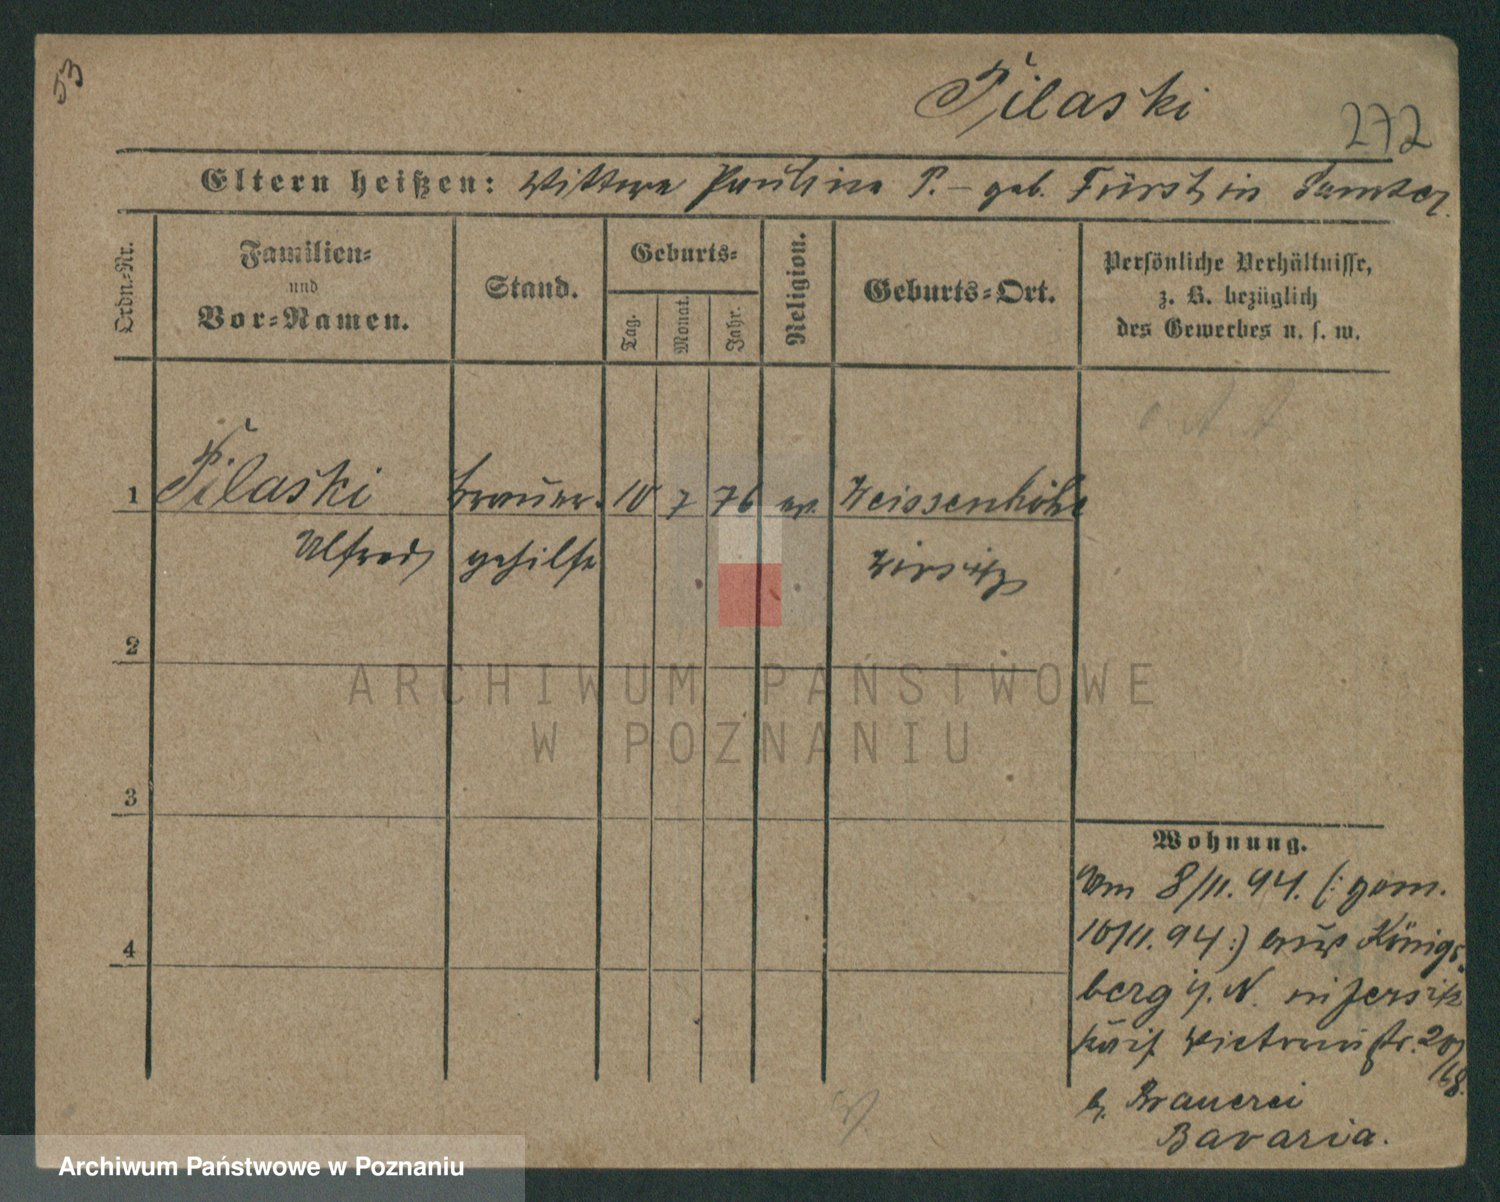 53
Pilaski
272
Eltern heißen: Wittwe Pauline P. – geb. Fürst, in Samter.
Ordn.-Nr.
Familien- und Vor-Namen.
Stand.
Geburts-
Tag.
Monat.
Jahr.
Religion.
Geburts-Ort.
Persönliche Verhältnisse,
z. B. bezüglich
des Gewerbes u. s. w.
1 Pilaski Brauer- 10 7 76 ev. Weissenhöhe
Alfred gehilfe Wirsitz
2
3
4
Wohnung.
Vom 8/11. 94. (: gem.
10/11. 94 :) aus Königs-
berg i/. N. in Jersitz
Kais. Victoriastr. 20/
18.
b/. Brauerei
Bavaria.
ARCHIWUM PAŃSTWOWE
W POZNANIU
Archiwum Państwowe w Poznaniu